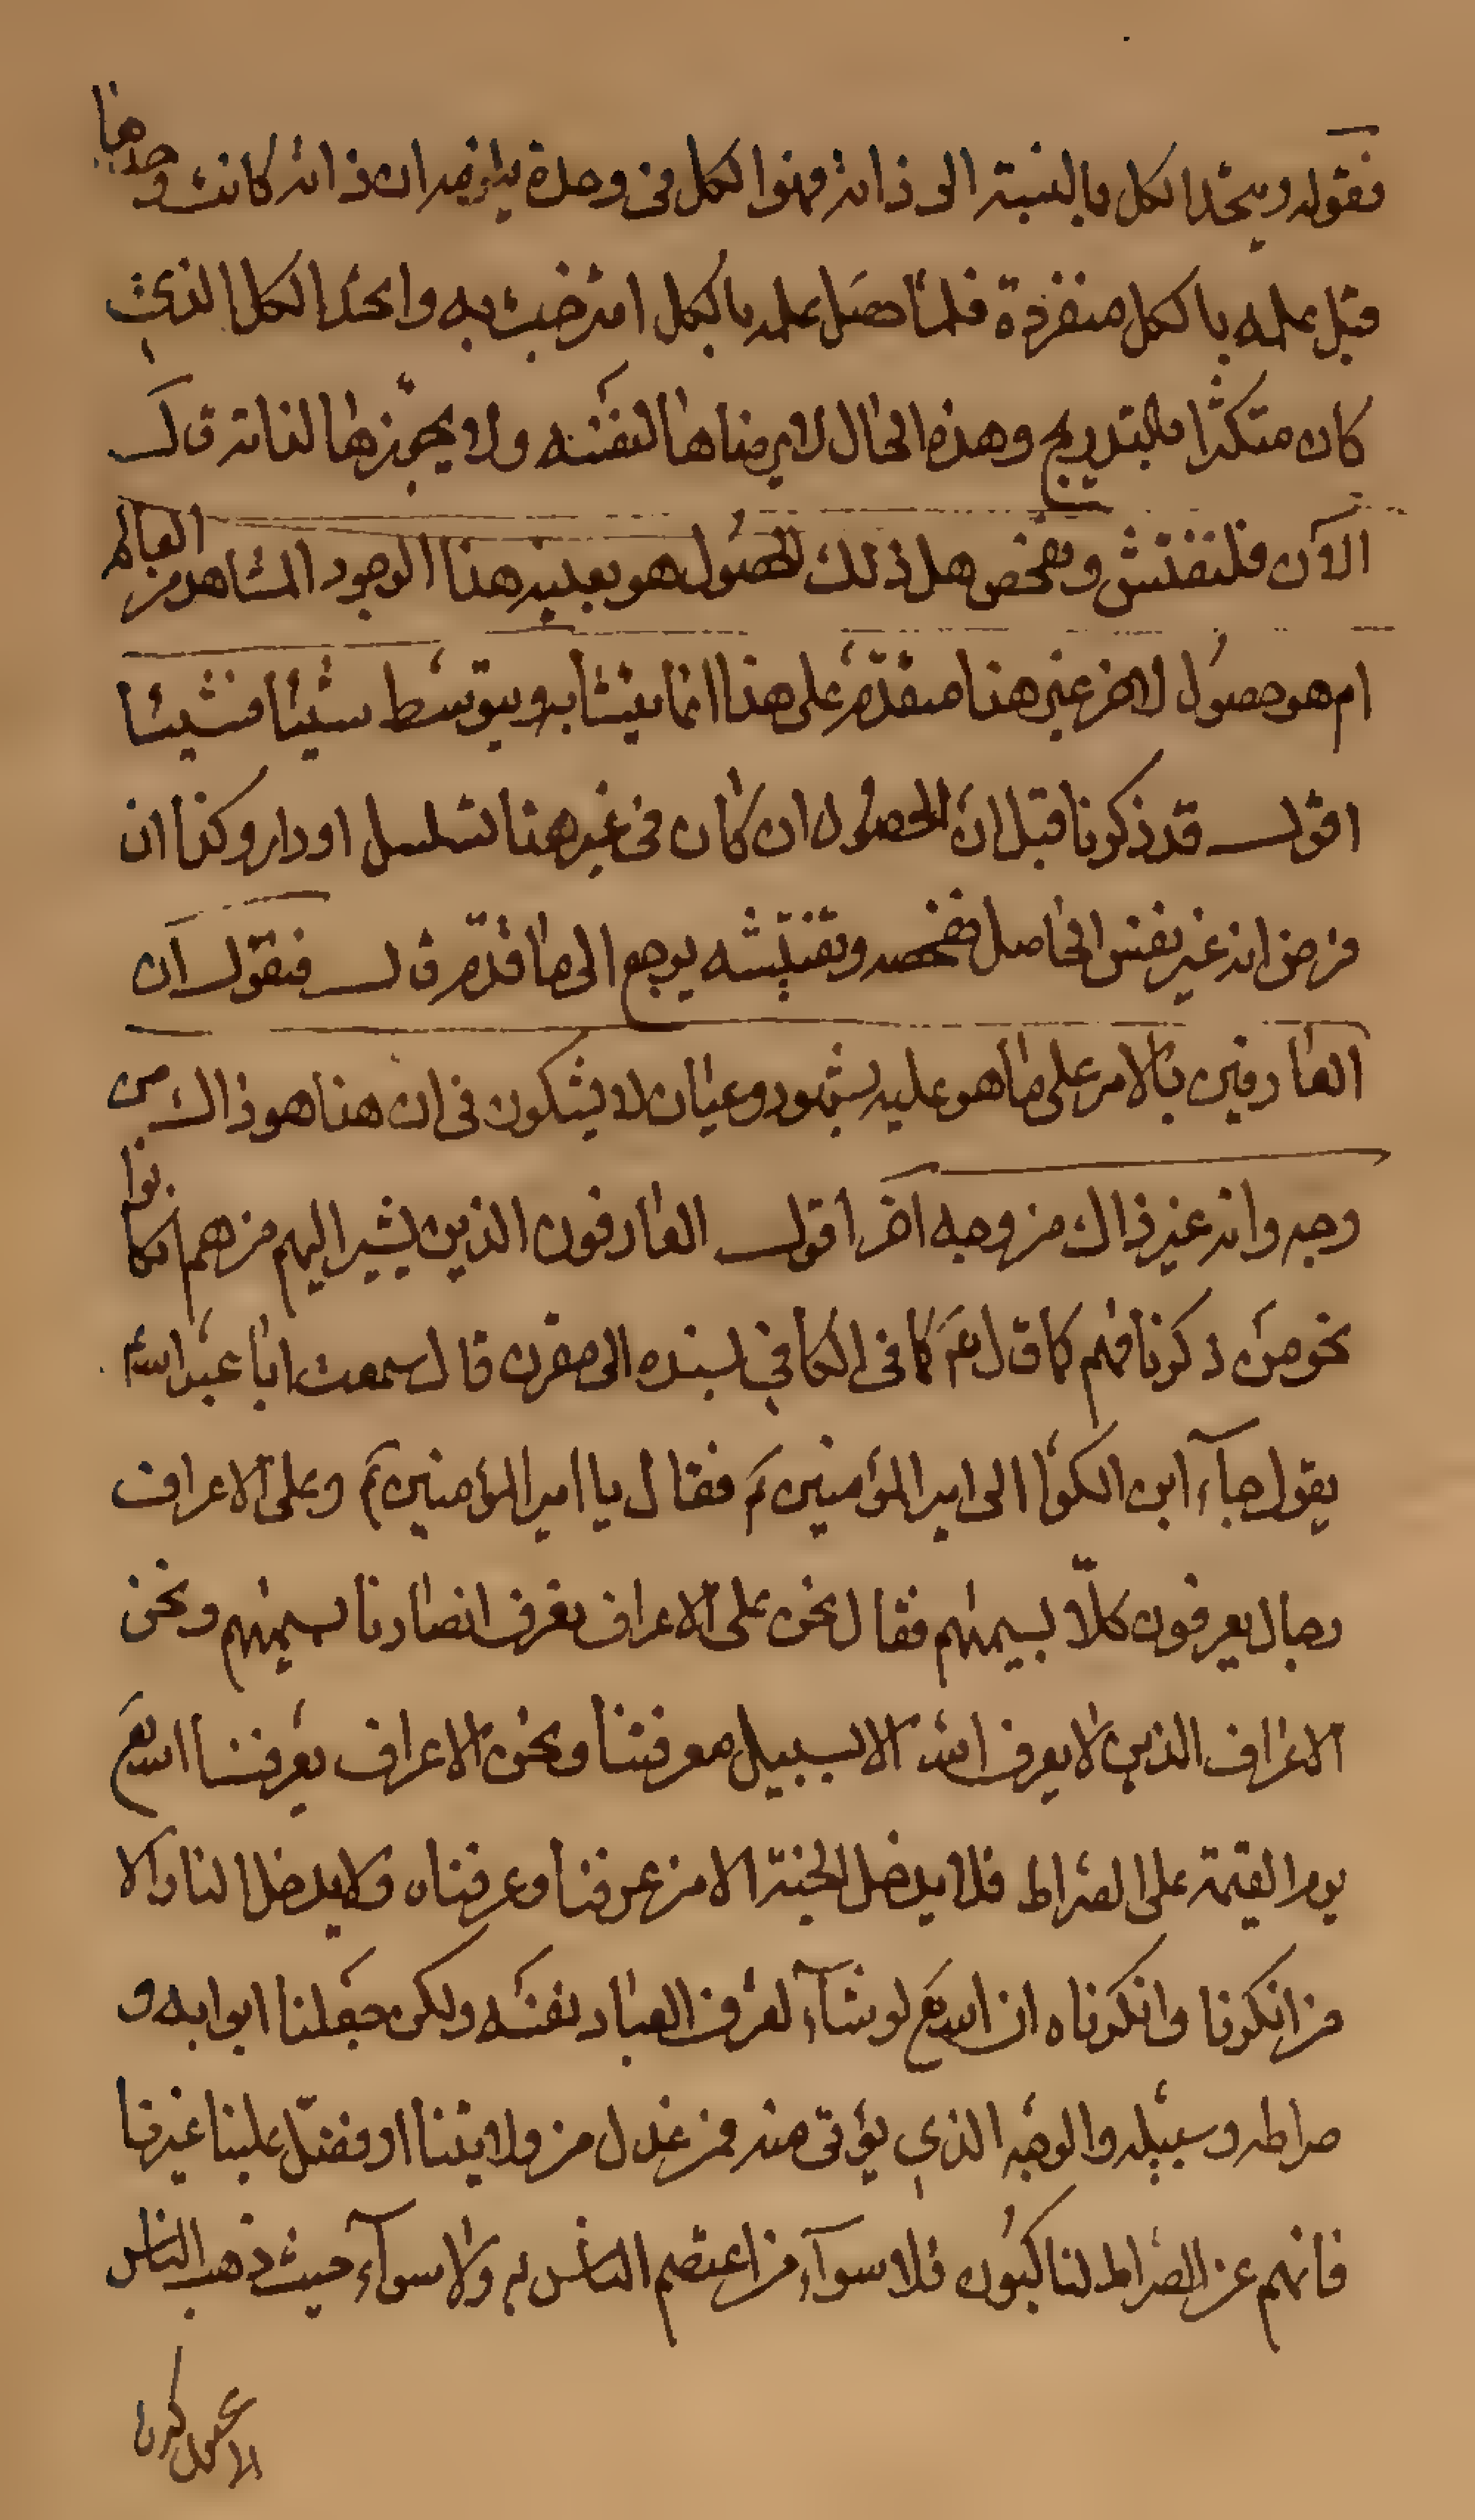 فقوله ويتحد الكل بالنسبة الى ذاته فهو الكل فى وحدة يلزمه ان ذاته كانت وحدها
قبل علمه بالكل منفردة فلما حصل علمه بالكل امترجت به واتحد الكل الذى
كان متكثرا بالتدريج وهذه الحال لا يرضاها لنفسه ولا يجوزها لذاته قال
الآن فلنفتش ونفحص هل ذلك الحصول هو بعينه هذا الوجود المشاهد من العالم
ام هو حصول لاخر غير هذا متقدم على هذا انما ينشا به ويتوسط شيئا فشيئا
اقول قد ذكرنا قبل ان الحصول ان كان فى غير هذا تسلسل او دار وكذا ان
فرض انه غير نفس الحاصل ففحصه وتفتيشه يرجع الى ما قدم قال فنقول ان
العارفين بالامر على ما هو عليه بشهود وعيان لا يشكون فى ان هذا هو ذاك من
وجه وانه غير ذاك من وجه آخر اقول العارفون الذين يشير اليهم من هم ان كانوا
نحو من ذكرنا فهم كما قال ع كما فى الكافي بسنده الى مقرن قال سمعت ابا عبد الله ع
يقول جآء ابن الكوا الى امير المؤمنين ع فقال يا امير المؤمنين ع وعلى الاعراف
رجال يعرفون كلّا بسيمهم فقال نحن على الاعراف نعرف انصارنا بسيمهم ونحن
الاعراف الذين لا يعرف الله الا بسبيل معرفتنا ونحن الاعراف يعرفنا الله تع
يوم القيمة على الصراط فلا يدخل الجنة الا من عرفنا وعرفناه ولا يدخل النار الا
من انكرنا وانكرناه ان الله تع لو شآء لعرف العباد نفسه ولكن جعلنا ابوابه و
صراطه وسبيله والوجه الذي يؤتى منه فمن عدل من ولايتنا او فضّل علينا غيرنا
فانهم عن الصراط لناكبون فلا سوآء من اعتصم الناس به ولا سوآء حيث ذهب الناس